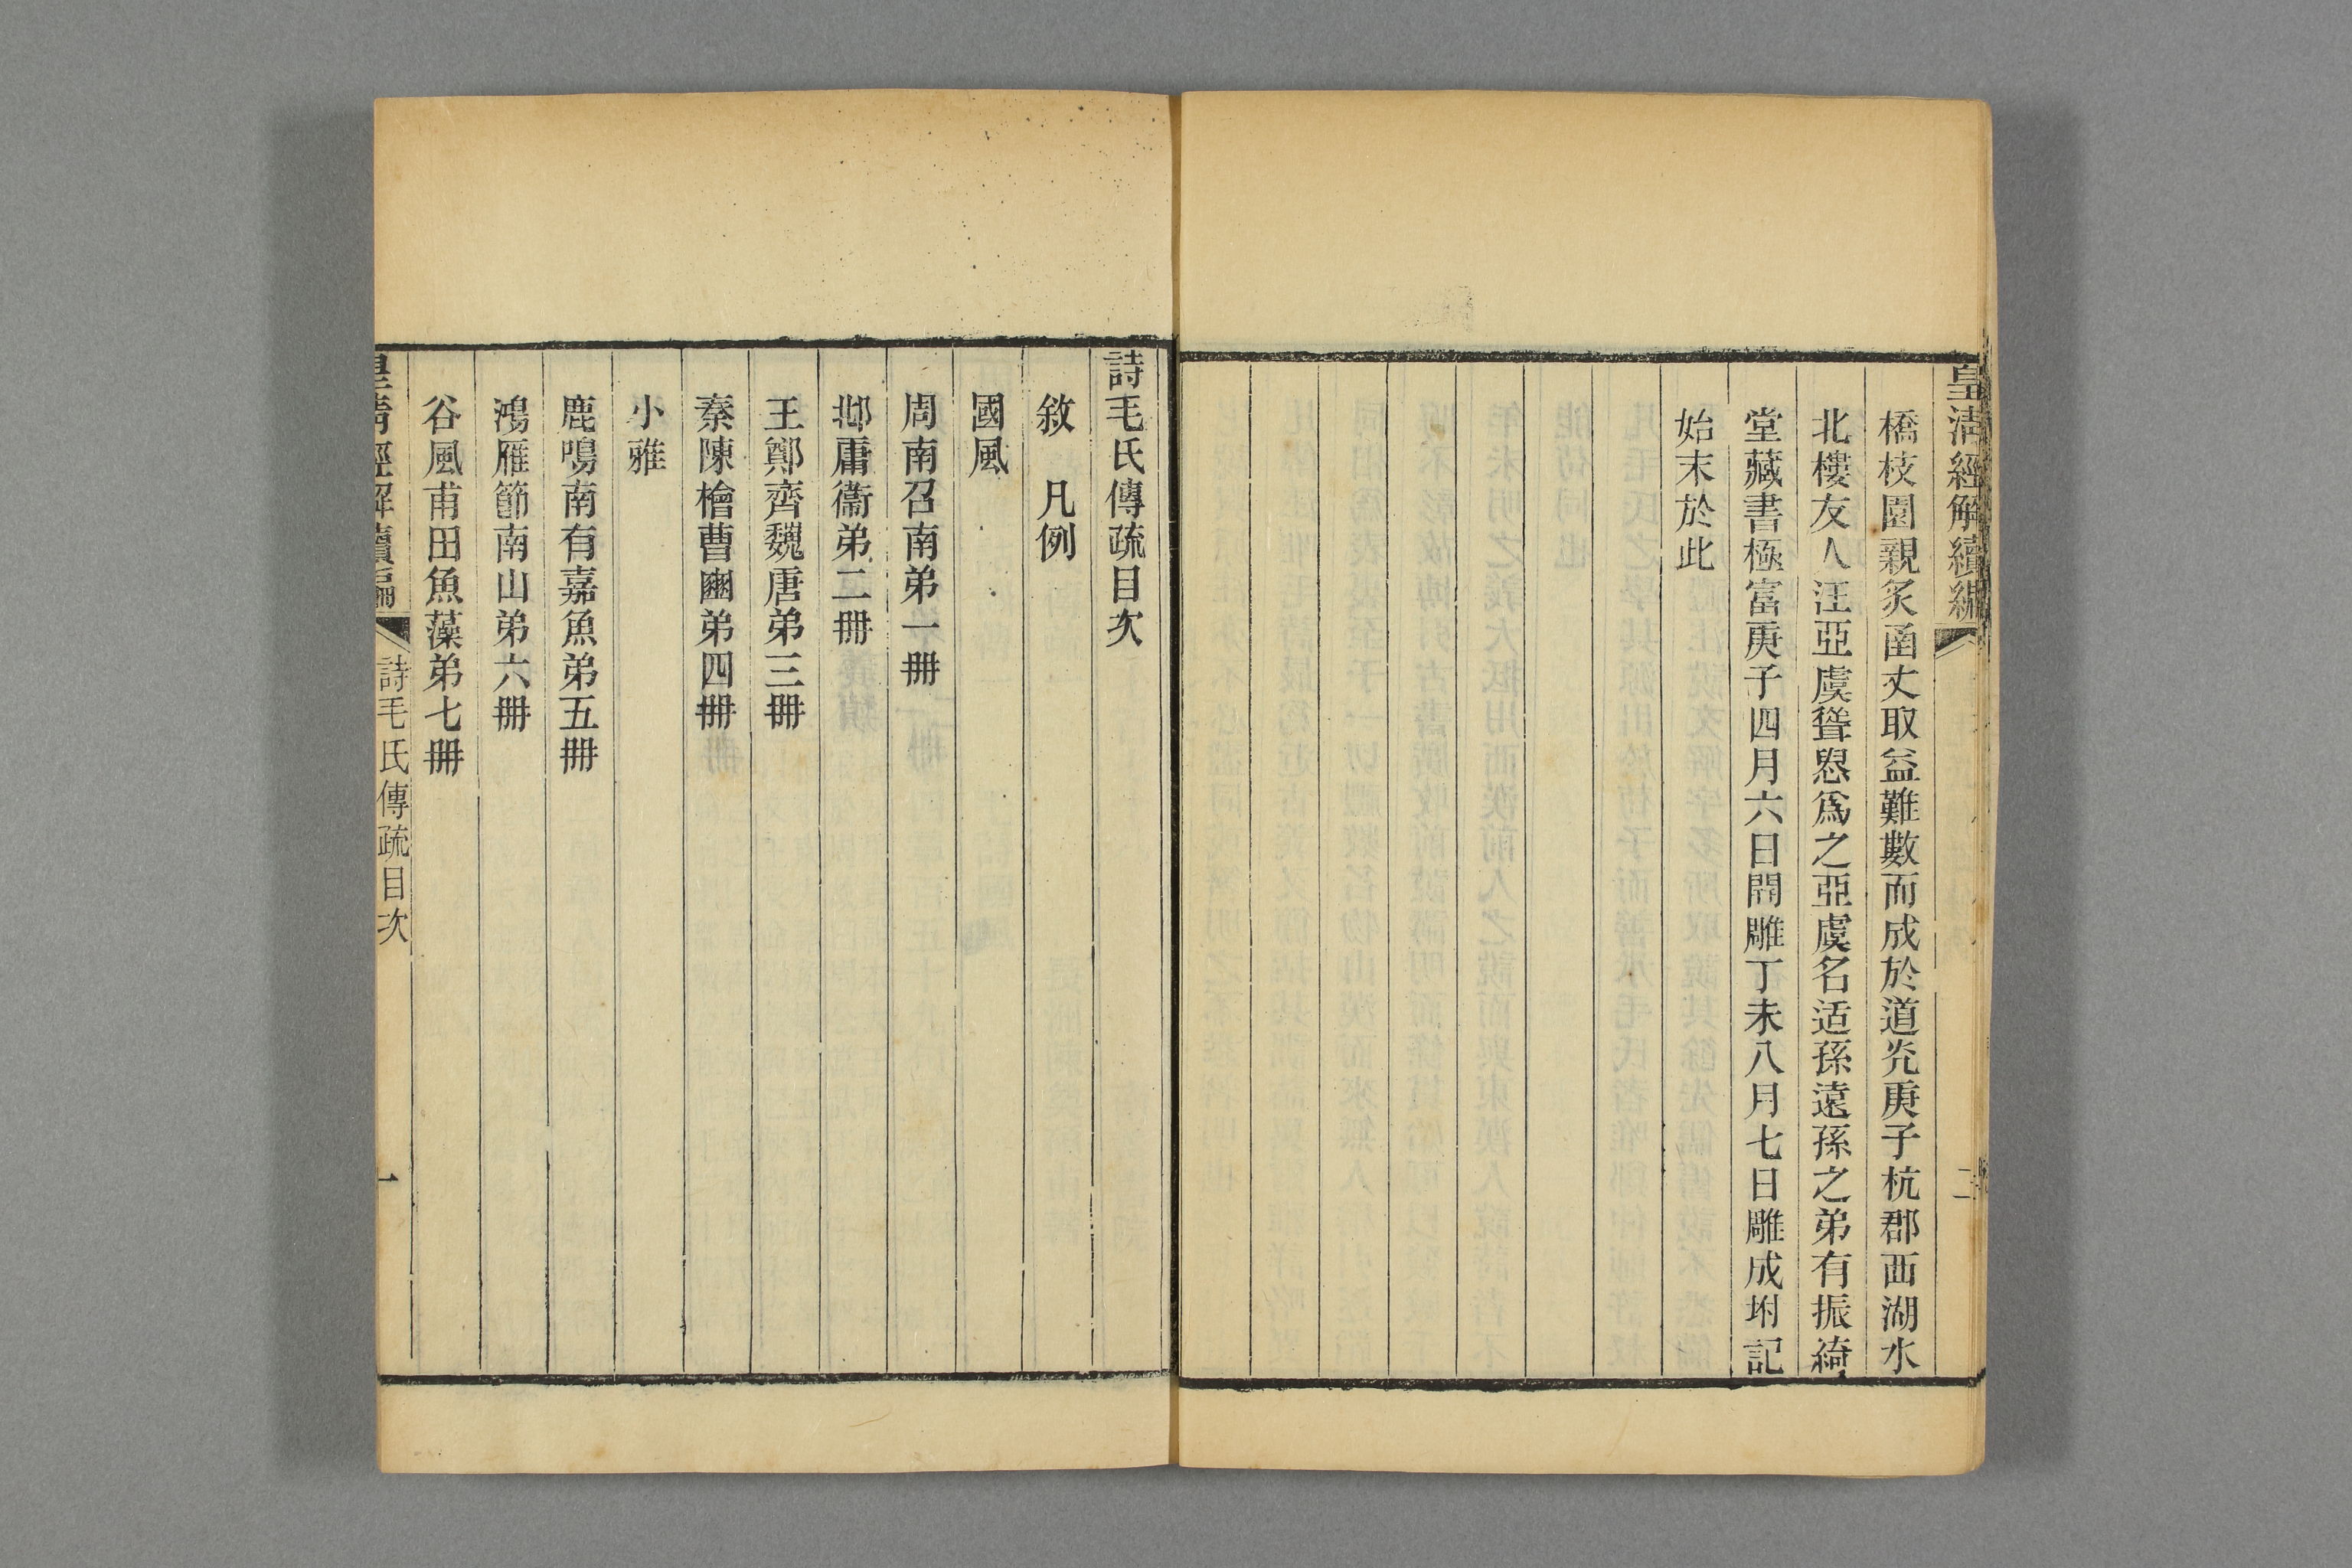 皇淸經解續編
二
橋枝園親炙函丈取益難數而成於道光庚子杭郡西湖水
北樓友人汪亞虞聳恖爲之亞虞名适孫遠孫之弟有振綺
堂藏書極富庚子四月六日開雕丁未八月七日雕成坿記
始末於此
詩毛氏傳疏目次
敘 凡例
國風
周南召南弟一冊
邶鄘衞弟二冊
王鄭齊魏唐弟三冊
秦陳檜曹豳弟四冊
小雅
鹿鳴南有嘉魚弟五冊
鴻雁節南山弟六冊
谷風甫田魚藻弟七冊
皇淸經解續編 詩毛氏傳疏目次 一